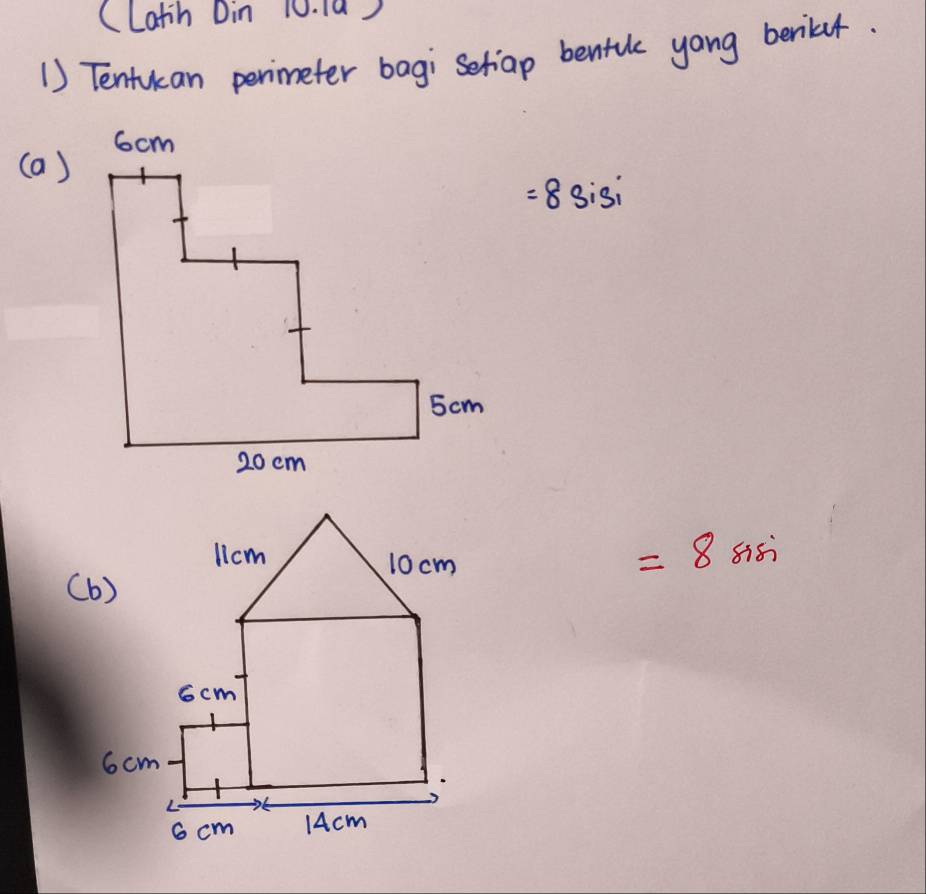 (Latih Din 10.1a)
1) Tentukan perimeter bagi setiap bentuk yang berikut.
(a)
6cm
= 8 sisi
5cm
20 cm
(b)
11cm
10 cm
= 8 sisi
6cm
6cm
6 cm
14cm